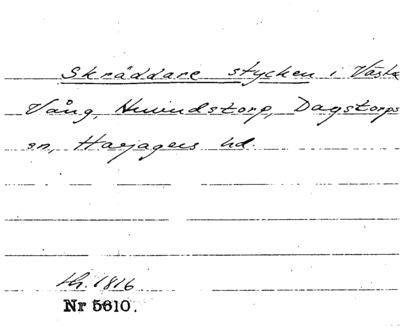 Skräddare stycken i Västra
Vång, Hvindstorp, Dagstorps
sn, Harjagers hd.
Kh. 1816
Nr 5610.